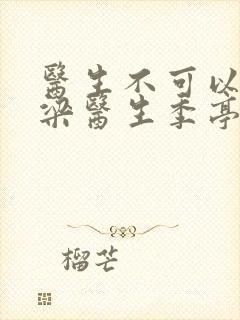 醫生不可以
梁醫生季亭
榴芒